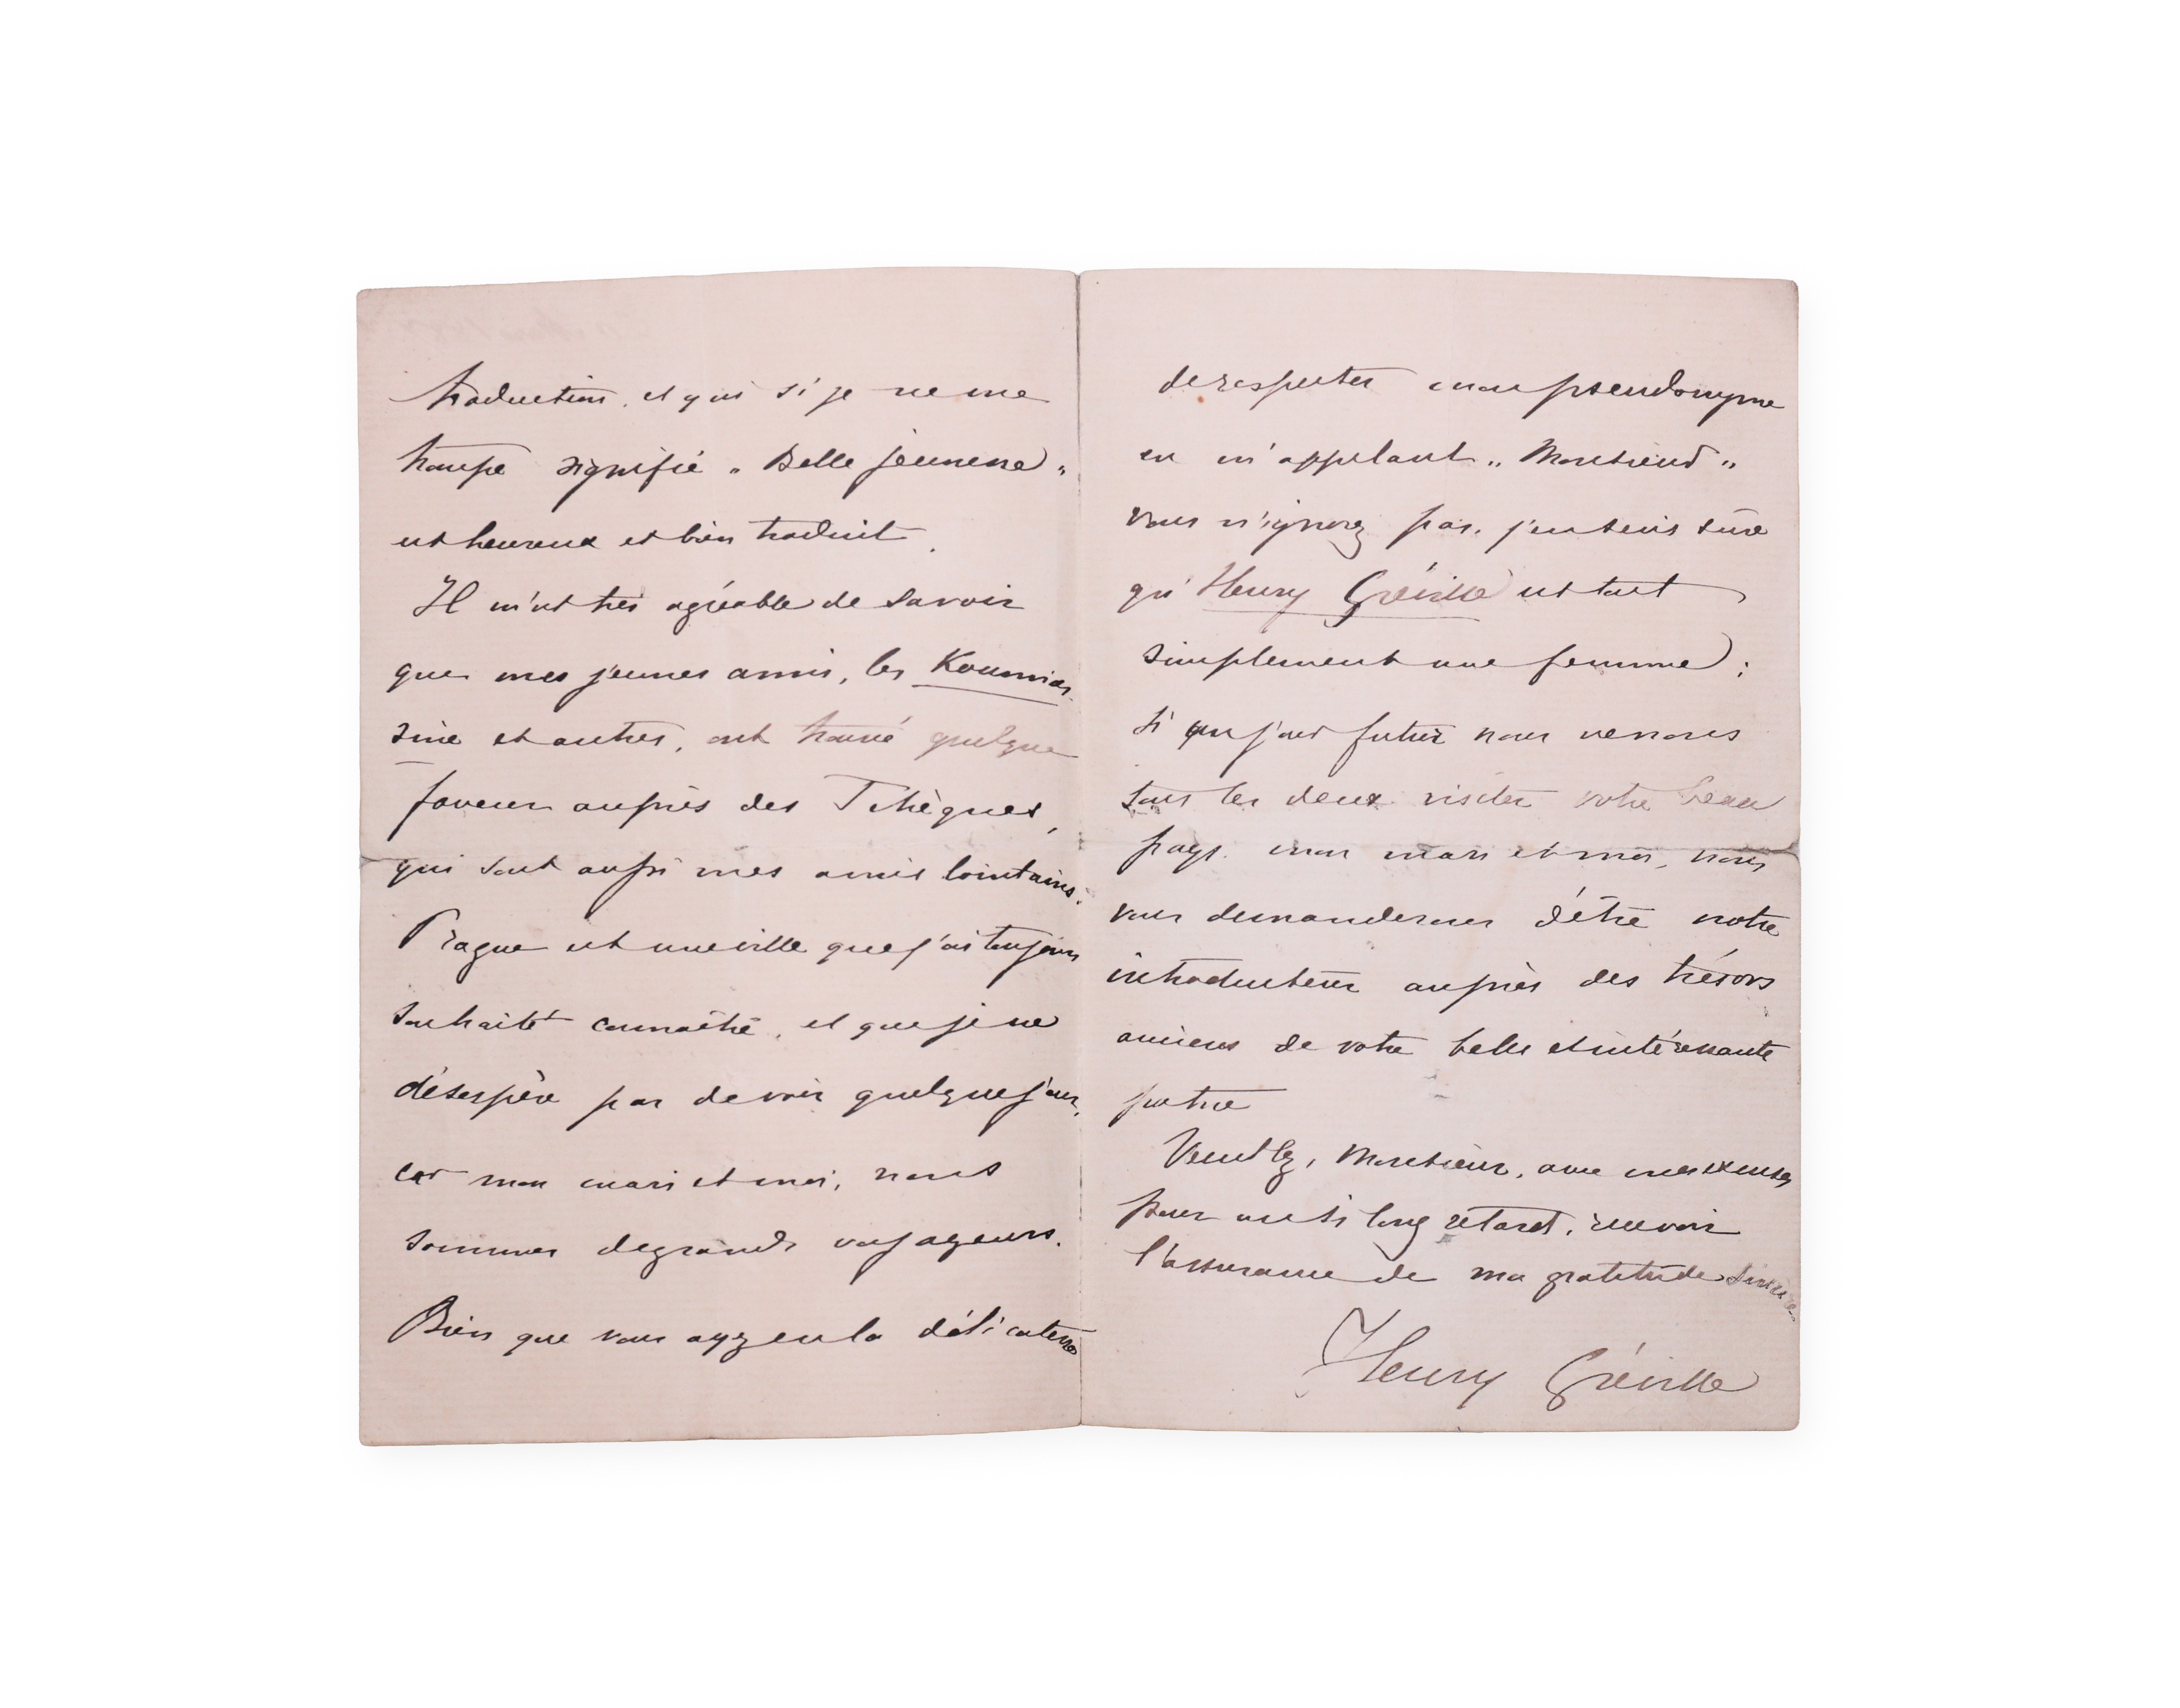 traduction, et qui si je ne me
trompe signifie „ Belle jeunesse „
est heureux et bien traduit.
Il m'est très agréable de savoir
que mes jeunes amis, les Koumias-
sine et autres, ont trouvé quelque
faveur auprès des Tchèques,
qui sont aussi mes amis lointains.
Prague est une ville que j'ai toujours
souhaité connaître, et que je ne
désespère pas de voir quelque jour,
car mon mari et moi, nous
sommes de grands voyageurs.
Bien que vous ayez eu la délicatesse
de respecter mon pseudonyme
en m'appelant „ Monsieur „
vous n'ignorez pas, j'en suis sûre
qu'Henry Gréville est tout
simplement une femme ;
si un jour futur nous venons
tous les deux visiter votre beau
pays, mon mari et moi, nous
vous demanderons d'être notre
introducteur auprès des trésors
anciens de votre belle et intéressante
patrie
Veuillez, Monsieur, avec mes excuses
pour un si long retard, recevoir
l'assurance de ma gratitude sincère
Henry Gréville